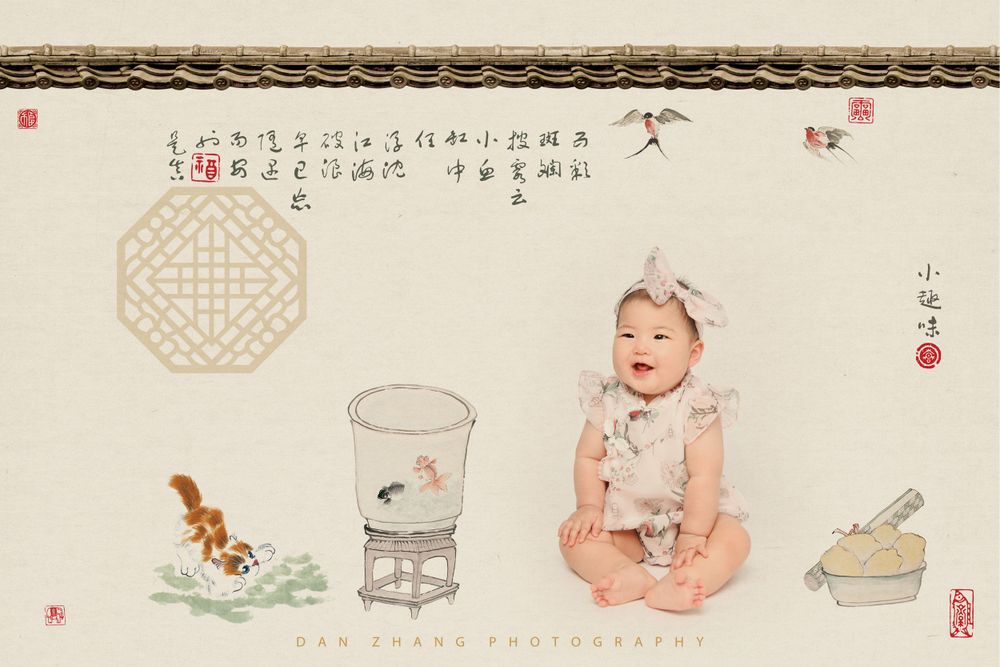 五彩
斑斓
云
小鱼
缸中
任
浮沈
江海
破浪
早已忘
随遇
而安
是真
小趣味
DAN ZHANG PHOTOGRAPHY